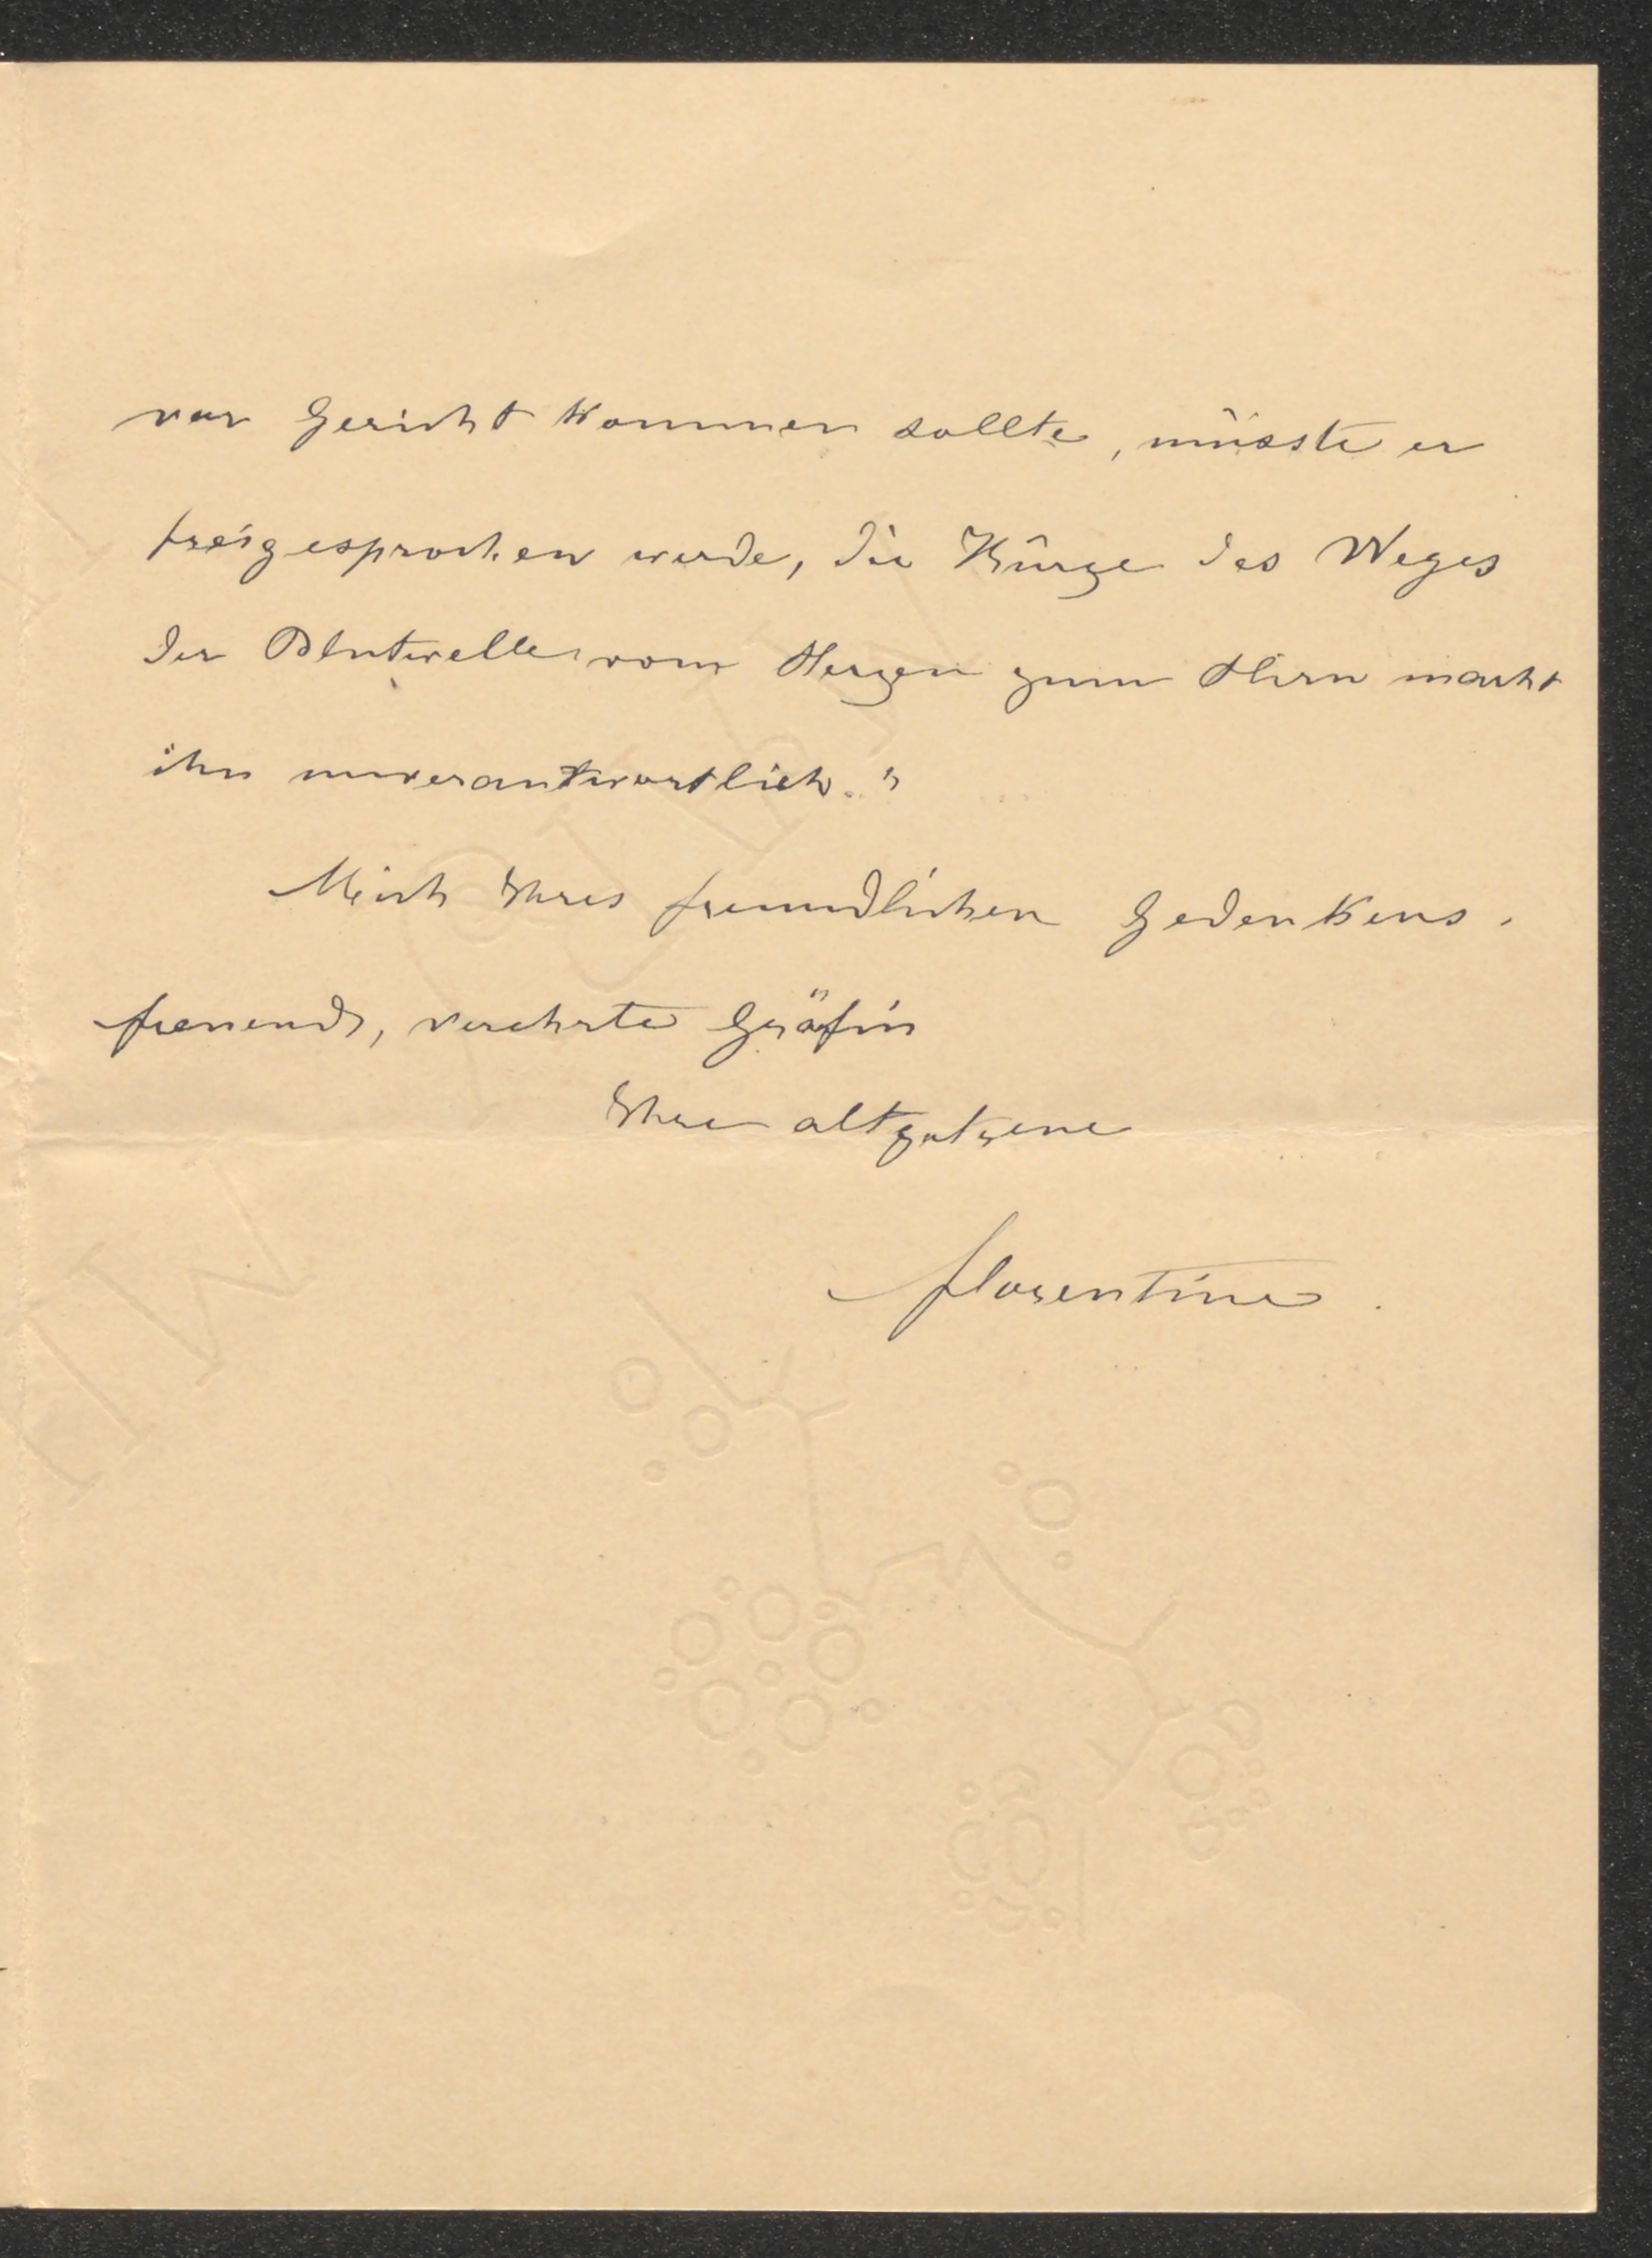 vor Gericht kommen sollte, müsste er
freigesprochen werde, die Kürze des Weges
der Blutwelle vom Herzen zum Hirn macht
ihn unverantwortlich."
Mich Ihres freundlichen Gedenkens
freuend, verehrte Gräfin
Ihre altgetreue
Florentine.